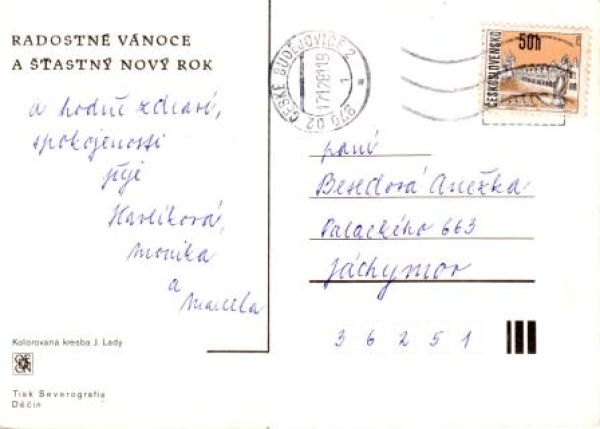 RADOSTNÉ VÁNOCE
A ŠŤASTNÝ NOVÝ ROK
a hodně zdraví,
spokojenosti
přeje
Havlíková,
Monika
a
Marcela
Kolorovaná kresba J. Lady
Tisk Severografia
Děčín
ČESKÉ BUDĚJOVICE 2
370 02
ČESKOSLOVENSKO
50h
paní
Besedová Anežka
Palackého 663
Jáchymov
36251